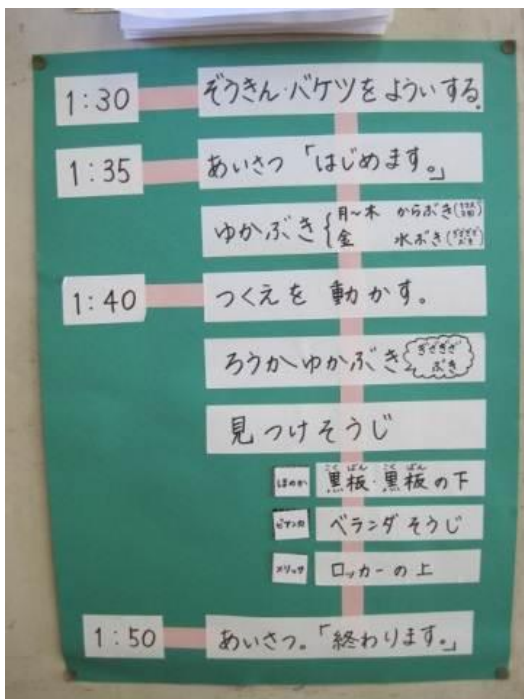 1:30 ぞうきん・バケツをよういする。
1:35 あいさつ「はじめます。」
ゆかぶき{月〜木 からぶき
金 水ぶき
1:40 つくえを 動かす。
ろうかゆかぶき ぎざぎざ
ぶき
見つけそうじ
ほのか 黒板・黒板の下
こくばん こくばん
ビアンカ ベランダそうじ
メリッサ ロッカーの上
1:50 あいさつ。「終わります。」